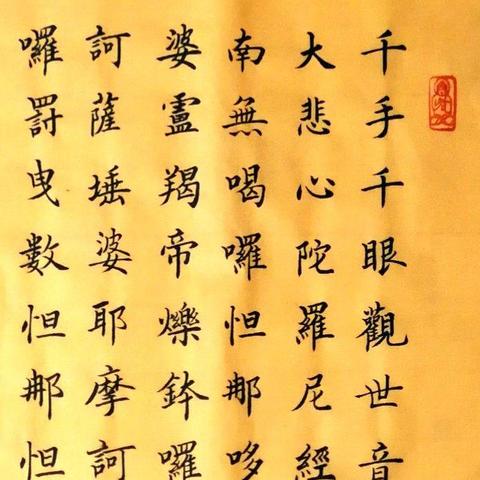 千手千眼觀世音
大悲心陀羅尼經
南無喝囉怛那哆
婆盧羯帝爍鉢囉
訶薩埵婆耶摩訶
囉罰曳數怛那怛